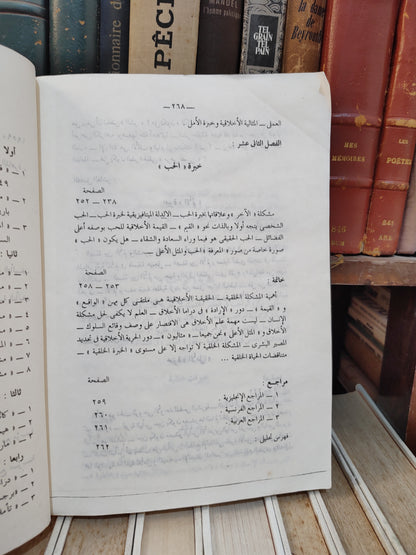 — ٢٦٨ —
العملى ـ المثالية الأخلاقية وخبرة الأمل
الفصل الثانى عشر :
خبرة « الحب »
الصفحة
٢٣٨ — ٢٥٢
مشكلة « الآخر » وعلاقاتها بخبرة الحب ـ الأدلة الميتافيزيقية لخبرة الحب ـ الحب
الشخصى يتجه أولا وبالذات نحو « الغير » ـ القيمة الأخلاقية للحب بوصفه أعلى
الفضائل ـ الحب الحقيقى هو فيما وراء السعادة والشقاء ـ هل يكون « الحب »
صورة خاصة من صور « المعرفة » ؟ الحب والمثل الأعلى
الصفحة
خاتمة :
٢٥٣ — ٢٥٨
أهمية المشكلة الخلقية ـ الحقيقة الأخلاقية هى ملتقى كل من « الواقع »
و « القيمة » ـ دور « الإرادة » فى دراما الأخلاق ـ العلم لا يكفى لحل مشكلة
الإنسان ـ ليست مهمة علم الأخلاق هى الاقتصار على وصف وقائع السلوك ـ
الأخلاق و « المثل الأعلى » ـ نحن جميعا « مثاليون » ـ دور الحرية الأخلاقية فى تحديد
المصير البشرى ـ المشكلة الخلقية لا تواجه إلا على مستوى « الخبرة الخلقية » ـ
متناقضات الحياة الخلقية .
مراجـــع :
الصفحة
١ ـ المراجع الإنجليزية ٢٥٩
٢ ـ المراجع الفرنسية ٢٦٠
٣ ـ المراجع العربية ٢٦١
فهرس تحليلى : ٢٦٢
أولا
ثانيا :
ثالثا :
رابعا :
PÊCHE
MANUEL
TEL
GRAIN
TEL
PAIN
MES
MÉMOIRES
LES
POÈTES